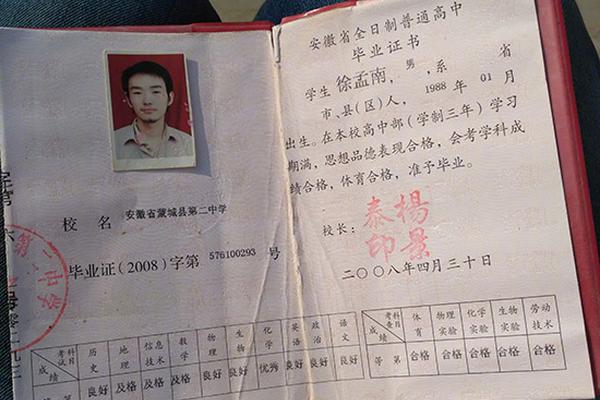 校名 安徽省蒙城县第二中学
毕业证(2008)字第 576100293 号
考试科目 历史 地理 信息技术 数学 物理 生物 化学 英语 政治 语文
成绩 良好 及格 及格 及格 良好 良好 优秀 良好 良好 良好
第二中学
安徽省全日制普通高中
毕业证书
学生 徐孟南，男，系 省
市、县(区)人，1988 年 01 月
出生。在本校高中部(学制三年)学习
期满，思想品德表现合格，会考学科成
绩合格，体育合格，准予毕业。
校长：
楊景泰印
二〇〇八年四月三十日
考查科目 体育 物理实验 化学实验 生物实验 劳动技术
成绩 等第 合格 合格 合格 合格 合格